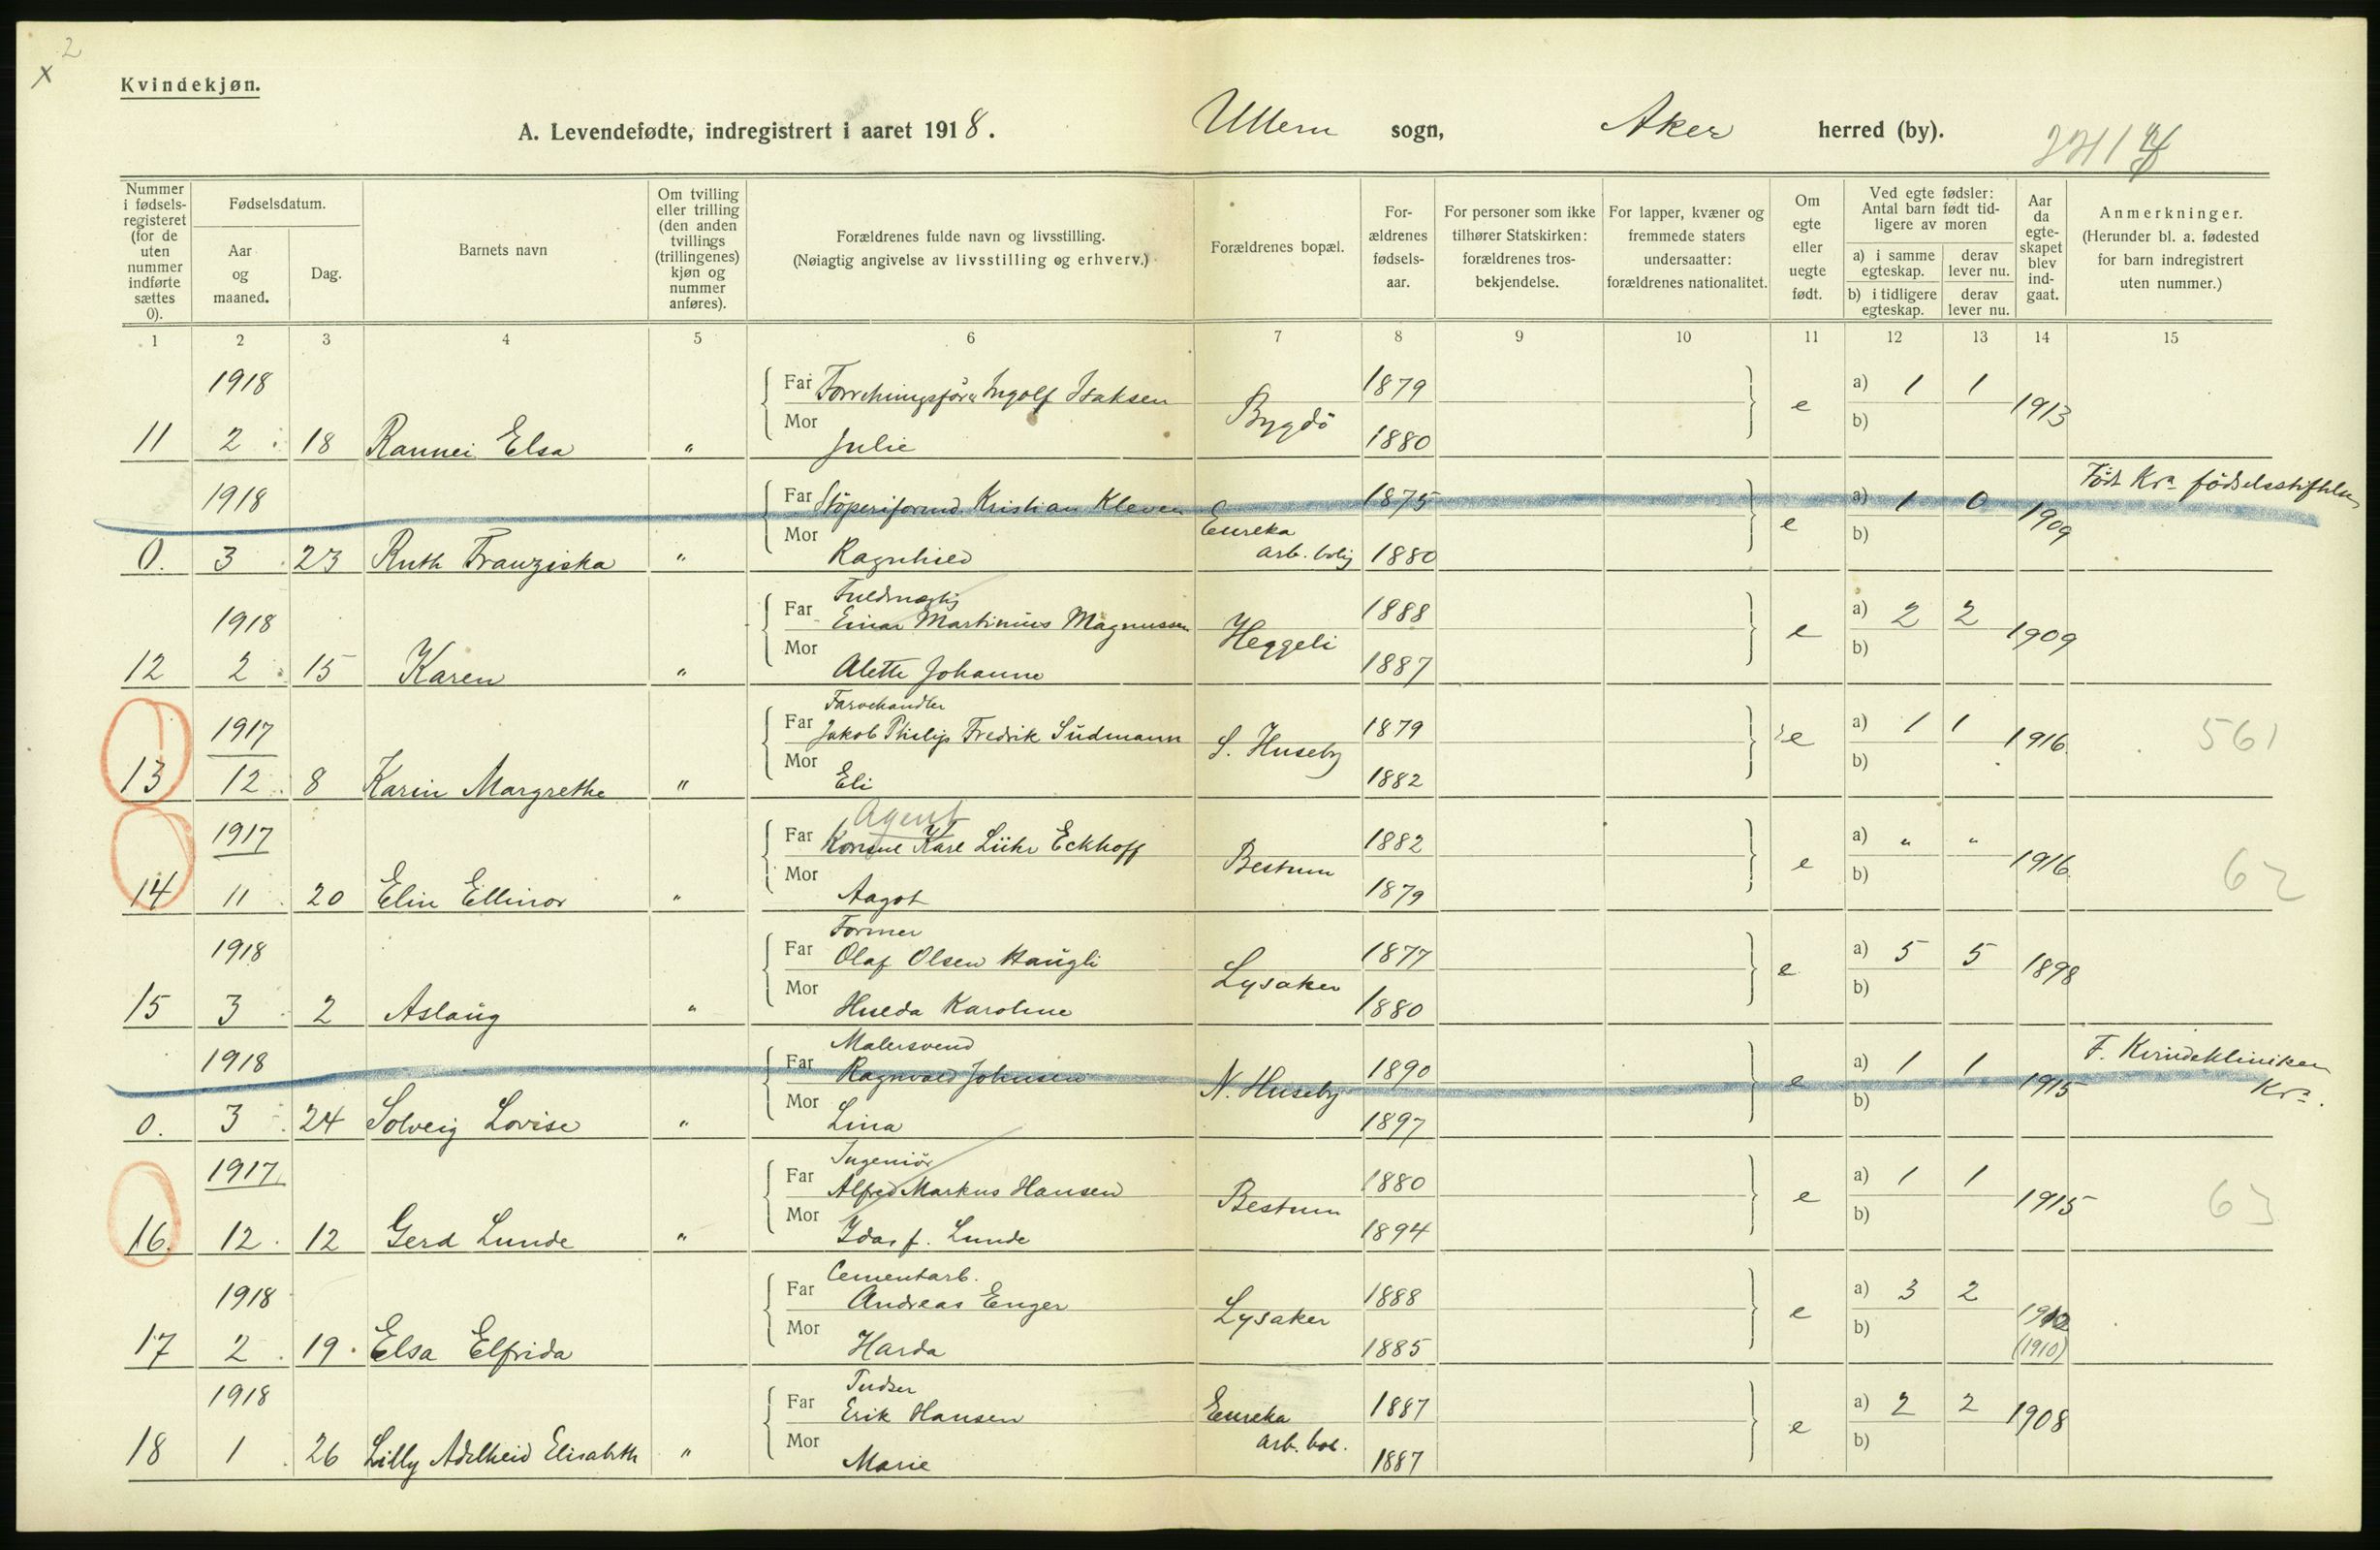 x 2
Kvindekjøn.
A. Levendefødte, indregistrert i aaret 1918. Ullern sogn, Aker herred (by).
Nummer i fødsels-registeret (for de uten nummer indførte sættes 0).
Fødselsdatum.
Aar og maaned.
Dag.
Barnets navn
Om tvilling eller trilling (den anden tvillings (trillingenes) kjøn og nummer anføres).
Forældrenes fulde navn og livsstilling.
(Nøiagtig angivelse av livsstilling og erhverv.)
Forældrenes bopæl.
For-ældrenes fødsels-aar.
For personer som ikke tilhører Statskirken: forældrenes tros-bekjendelse.
For lapper, kvæner og fremmede staters undersaatter: forældrenes nationalitet.
Om egte eller uegte født.
Ved egte fødsler: Antal barn født tid-ligere av moren
a) i samme egteskap.
derav lever nu.
b) i tidligere egteskap.
derav lever nu.
Aar da egte-skapet blev ind-gaat.
Anmerkninger.
(Herunder bl. a. fødested for barn indregistrert uten nummer.)
1 2 3 4 5 6 7 8 9 10 11 12 13 14 15
1918 Far Ingolf Isaksen 1879 a) 1 1
11 2 18 Rannei Elsa " Mor Julie Bygdö 1880 e b) 1913
1918 Far Stöperiformd. Kristian Kleven 1875 a) 1 0 Födt Kra födselsstiftelse
0. 3 23 Ruth Franziska " Mor Ragnhild Eureka arb. bolig 1880 e b) 1909
Fuldmægtig
1918 Far Einar Martinius Magnussen 1888 a) 2 2
12 2 15 Karen " Mor Alette Johanne Heggeli 1887 e b) 1909
Farvehandler
1917 Far Jakob Philip Fredrik Südmann 1879 a) 1 1
13 12 8 Karin Margrethe " Mor Eli S. Huseby 1882 e b) 1916 561
Agent
1917 Far Konsul Karl Lühr Eckhoff 1882 a) " "
14 11 20 Elin Ellinor " Mor Aagot Bestum 1879 e b) 1916 62
Former
1918 Far Olaf Olsen Haugli 1877 a) 5 5
15 3 2 Aslaug " Mor Hulda Karoline Lysaker 1880 e b) 1898
Malersvend
1918 Far Ragnvald Johnsen 1890 a) 1 1 F. Kvindekliniken Kra.
0. 3 24 Solveig Lovise " Mor Lina N. Huseby 1897 e b) 1915
Ingeniör
1917 Far Alfred Markus Hansen 1880 a) 1 1
16. 12 12 Gerd Lunde " Mor Ida f. Lunde Bestum 1894 e b) 1915 63
Cementarb.
1918 Far Andreas Enger 1888 a) 3 2
17 2 19 Elsa Elfrida Mor Harda Lysaker 1885 e b) 1912 (1910)
1918 Far Erik Hansen 1887 a) 2 2
18 1 26 Lilly Adelheid Elisabeth " Mor Marie Eureka arb. bol. 1887 e b) 1908